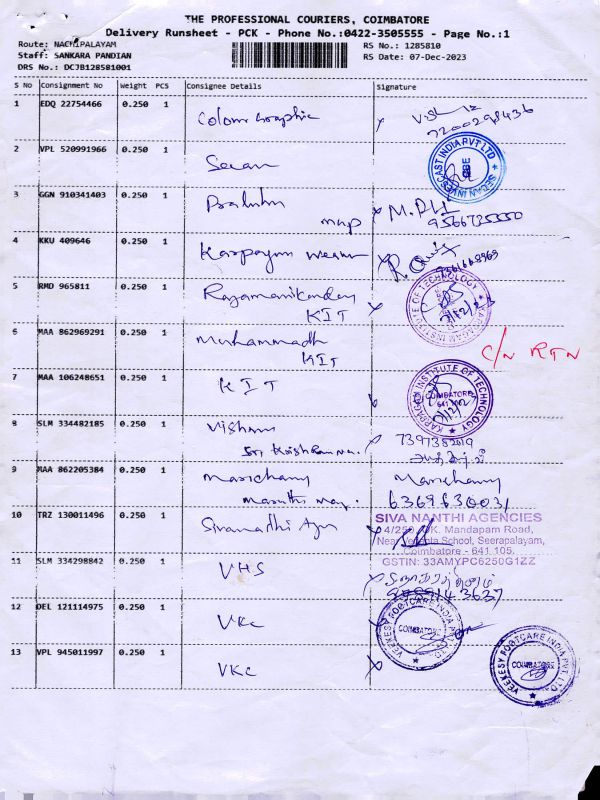 THE PROFESSIONAL COURIERS, COIMBATORE
Delivery Runsheet - PCK - Phone No.:0422-3505555 - Page No.:1
Route: NACHIPALAYAM
RS No.: 1285810
Staff: SANKARA PANDIAN
RS Date: 07-Dec-2023
DRS No.: DCJB128581001
S No Consignment No Weight PCS Consignee Details Signature
1 EDQ 22754466 0.250 1 Colour Graphic
7200298436
2 VPL 520991966 0.250 1 Secan
SECAN INVESCAST INDIA PVT LTD
3 GGN 910341403 0.250 1
4 KKU 409646 0.250 1
5 RMD 965811 0.250 1 Rajamanikandan
KIT
KARPAGAM INSTITUTE OF TECHNOLOGY
6 MAA 862969291 0.250 1 Muhammadh
KIT
C/N RTN
7 MAA 106248651 0.250 1 KIT
KARPAGAM INSTITUTE OF TECHNOLOGY
COIMBATORE
8 SLM 334482185 0.250 1
9 MAA 862205384 0.250 1 Marichamy Marichamy
6369630031
10 TRZ 130011496 0.250 1
SIVA NANTHI AGENCIES
Mandapam Road,
School, Seerapalayam,
Coimbatore - 641 105.
GSTIN: 33AMYPC6250G1ZZ
11 SLM 334298842 0.250 1 VHS
12 DEL 121114975 0.250 1 VKC
VEEKESY FOOTCARE INDIA PVT LTD
COIMBATORE
13 VPL 945011997 0.250 1 VKC
VEEKESY FOOTCARE INDIA PVT LTD
COIMBATORE